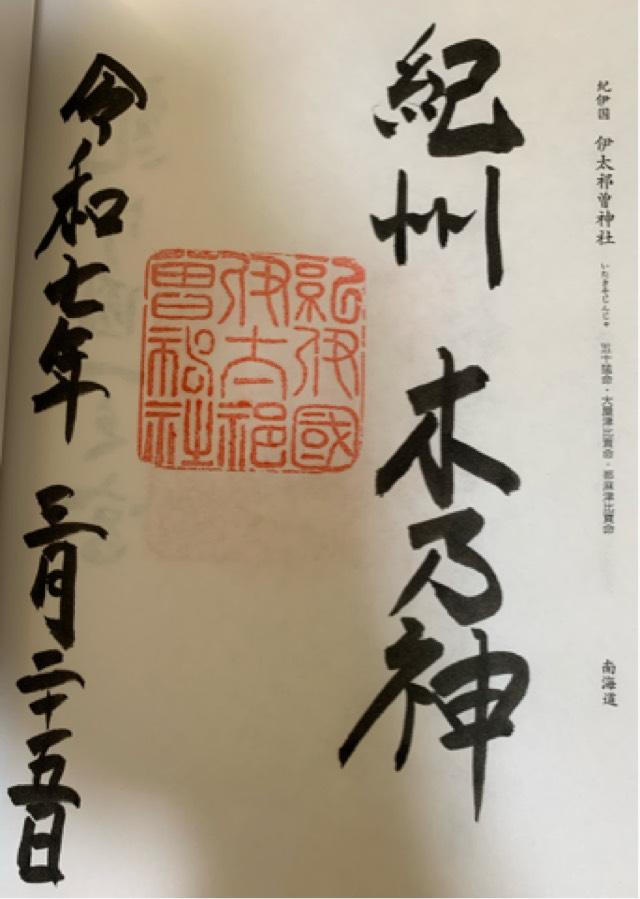 紀伊国 伊太祁曽神社 いたきそじんじゃ 五十猛命・大屋津比賣命・都麻津比賣命 南海道
紀州 木乃神
紀伊國
伊太祁
曽神社
令和七年 三月二十五日